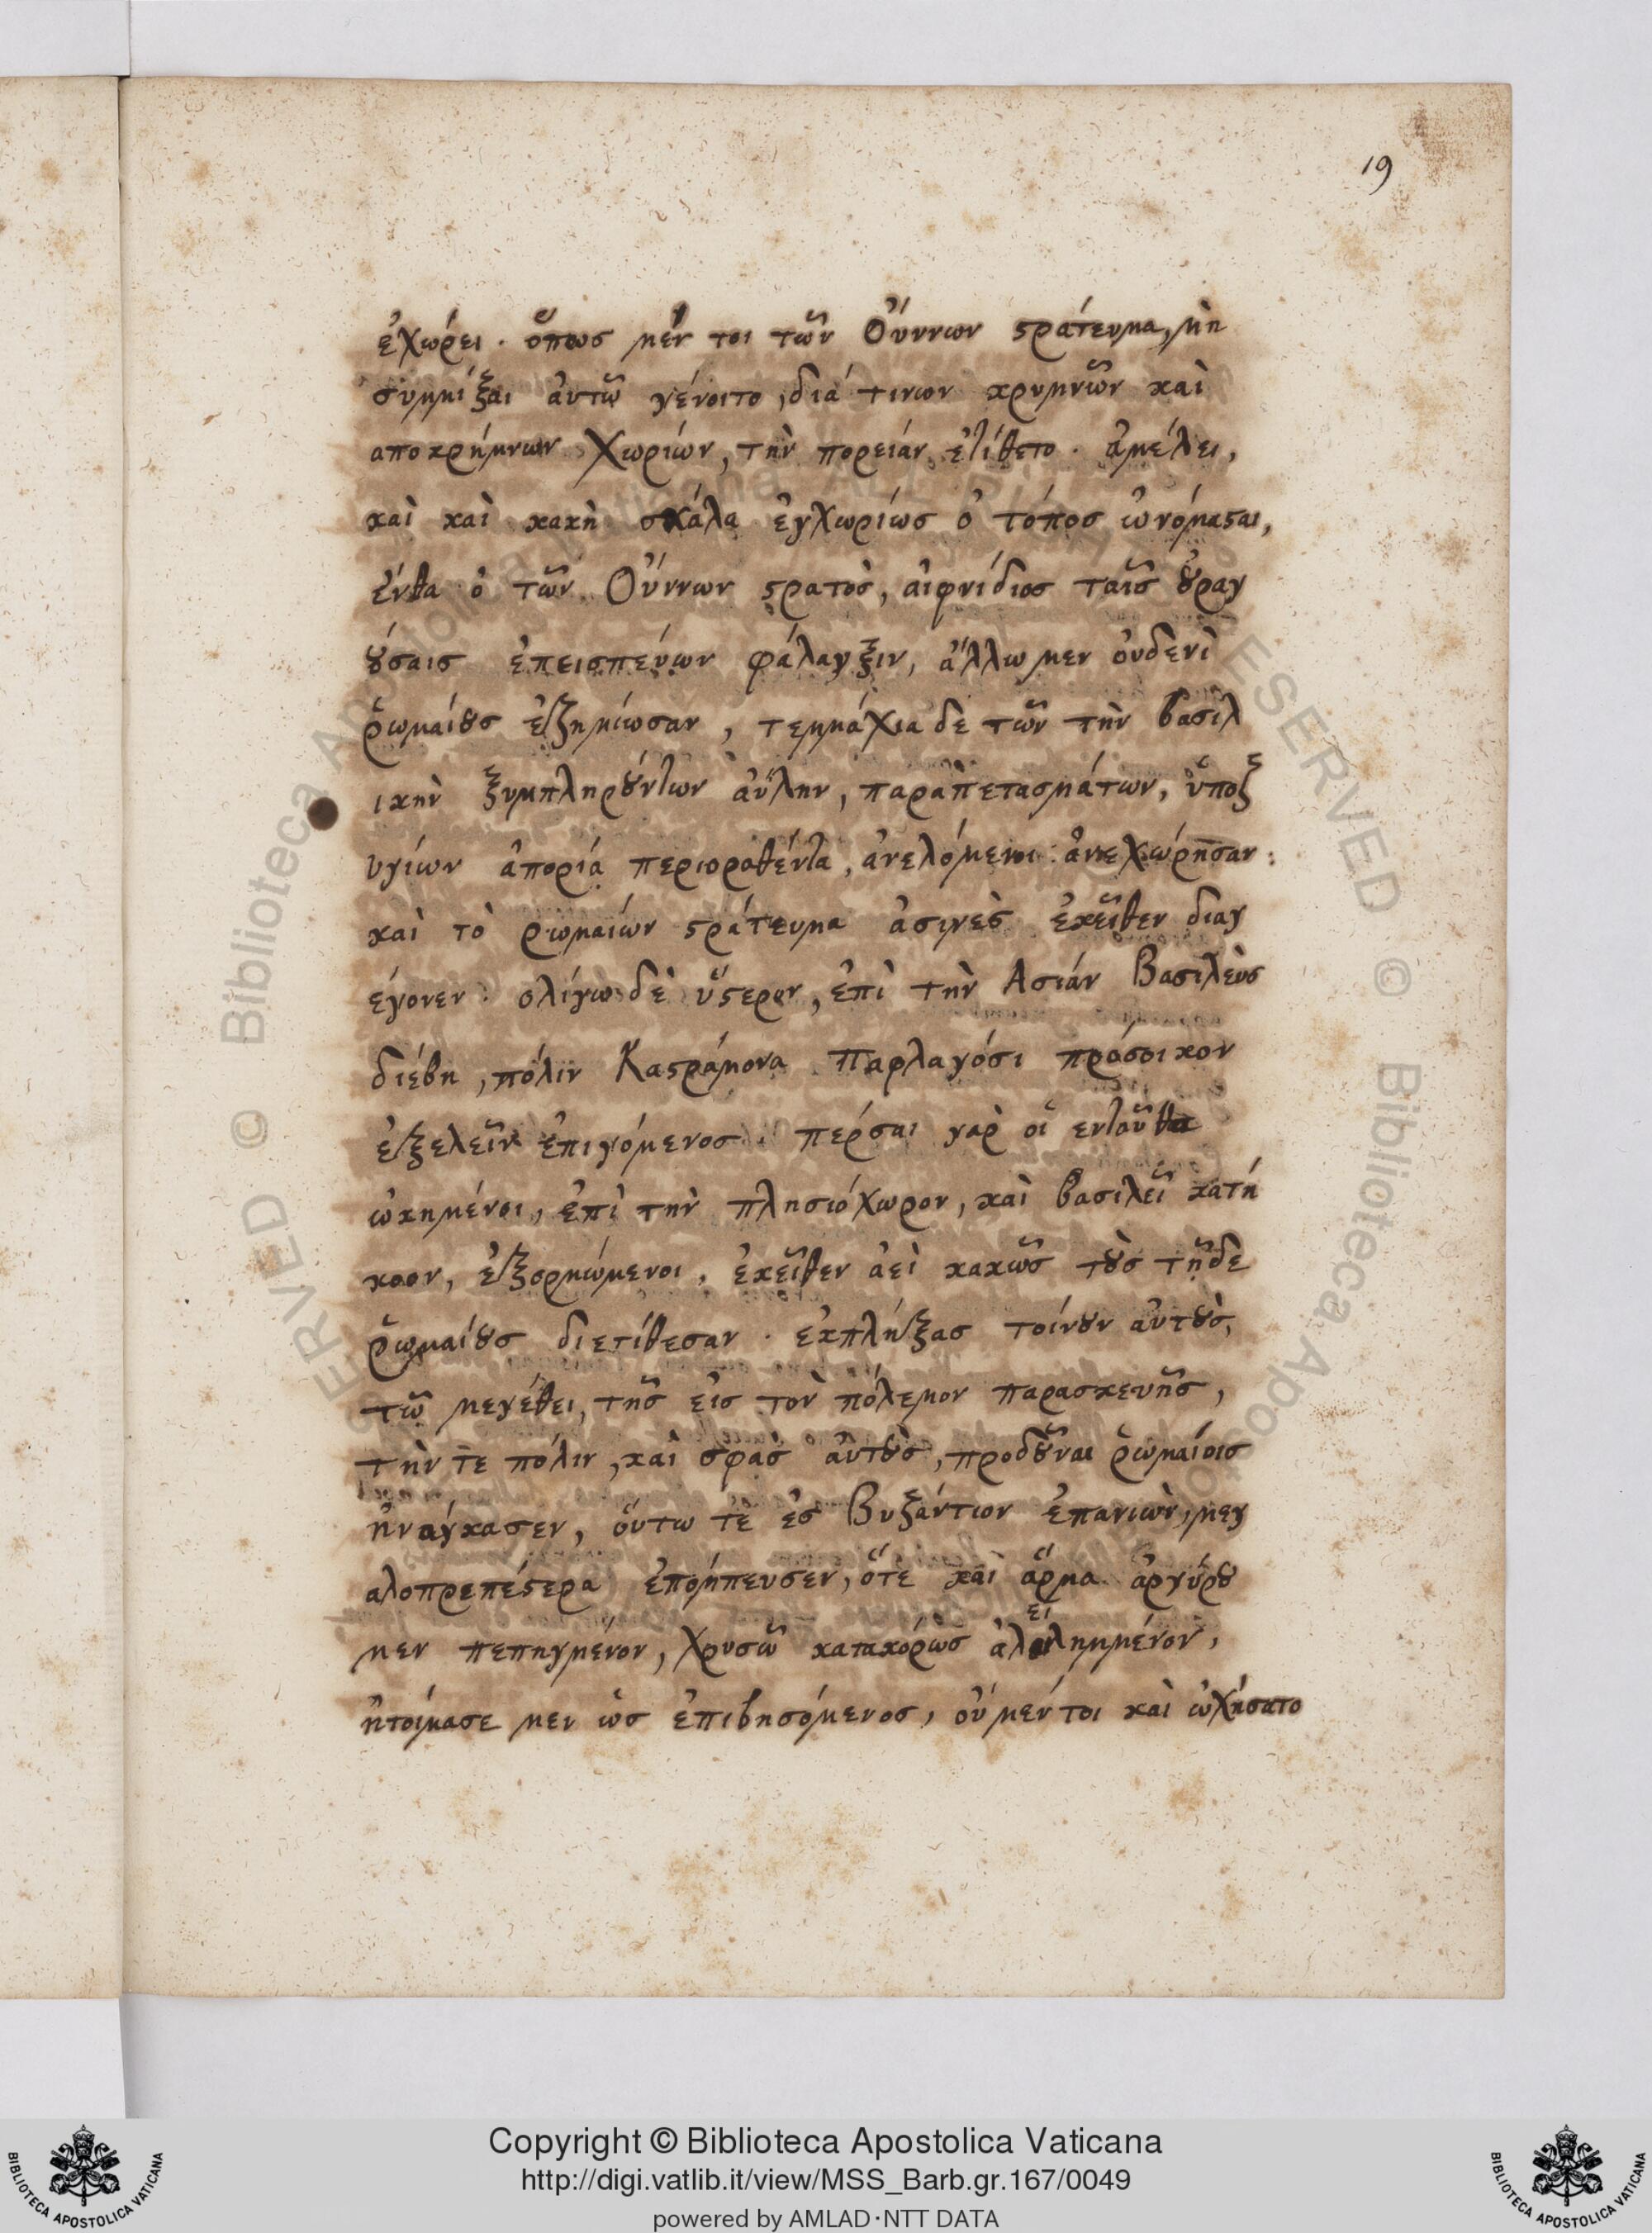 19
ἐχώρει . ὅπως μέν τοι τῶν Οὔννων ϛράτευμα, μὴ
συμμίξαι ἀυτῶ γένοιτο, διά τινων κρυμνῶν καὶ
αποκρήμνων χωριών, τὴν πορείαν ἐτίθετο . ἀμέλει,
καὶ καὶ κακὴ σκάλα ἐγχωρίως ὁ τόπος ὠνόμαϛαι,
ἔνθα ὁ τῶν Οὔννων ϛρατὸς, αἰφνίδιος ταῖς ȣ̓ραγ
ȣ́σαις ἐπεισπεύων φάλαγξιν, ἄλλω μεν ὀυδενὶ
ῥωμαίȣς ἐζημίωσαν, τεμμάχια δε τῶν τὴν βασιλ
ικὴν ξυμπληρȣ́ντων ἀύλην, παραπετασμάτων, ὑποζ
υγίων ἀπορία περιοραθέντα, ἀνελόμενοι ἀνεχώρησαν:
καὶ τὸ ρωμαίων ϛράτευμα ἀσινὲς ἐκεῖθεν διαγ
έγονεν : ολίγω δὲ ὕϛερον, ἐπὶ τὴν Ασιάν Βασιλεὺς
διέβη, πόλιν Καϛράμονα Παφλαγόσι πρόσοικον
ἐξελεῖν ἐπιγόμενος . πέρσαι γαρ οἱ ενταῦθα
ὠκημένοι, ἐπὶ τὴν πλησιόχωρον, καὶ βασιλεῖ κατή
κοον, ἐξορμώμενοι, ἐκεῖθεν ἀεὶ κακῶς τȣ̀ς τῇδε
ῥωμαίȣς διετίθεσαν . εκπλήξας τοίνυν ἀυτȣ̀ς,
τῶ μεγέθει, τῆς εἰς τὸν πόλεμον παρασκευῆς,
τὴν τε πόλιν, καὶ σφας ἀυτȣ̀ς, προδȣ͂ναι ῥωμαίοις
ἠνάγκασεν, ὅυτω τὲ ἐς Βυζάντιον ἐπανιὼν, μεγ
αλοπρεπέϛερα ἐπόμπευσεν, ὅτε καὶ ἅρμα ἀργύρȣ
μεν πεπηγμένον, χρυσῶ κατακόρως ἀλειλημμένον,
ἡτοίμασε μεν ὡς ἐπιβησόμενος, ὀύ μέντοι καὶ ὠχήσατο
Copyright © Biblioteca Apostolica Vaticana
http://digi.vatlib.it/view/MSS_Barb.gr.167/0049
powered by AMLAD·NTT DATA